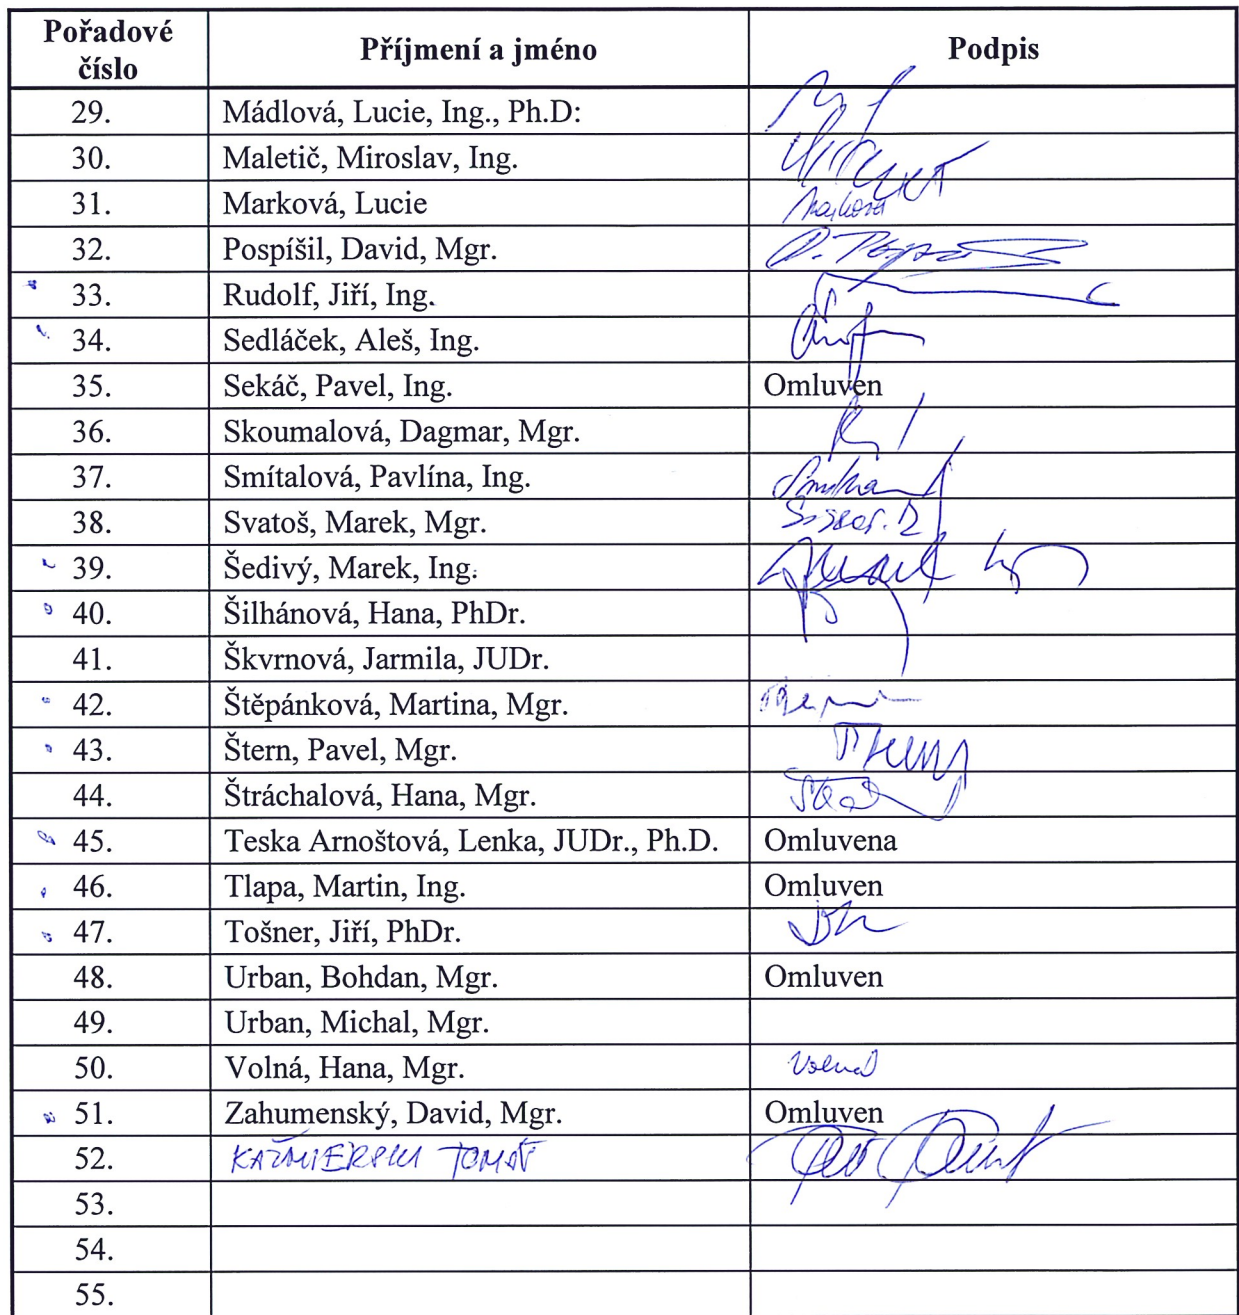 Pořadové číslo Příjmení a jméno Podpis
29. Mádlová, Lucie, Ing., Ph.D:
30. Maletič, Miroslav, Ing.
31. Marková, Lucie
32. Pospíšil, David, Mgr.
33. Rudolf, Jiří, Ing.
34. Sedláček, Aleš, Ing.
35. Sekáč, Pavel, Ing. Omluven
36. Skoumalová, Dagmar, Mgr.
37. Smítalová, Pavlína, Ing.
38. Svatoš, Marek, Mgr.
39. Šedivý, Marek, Ing.
40. Šilhánová, Hana, PhDr.
41. Škvrnová, Jarmila, JUDr.
42. Štěpánková, Martina, Mgr.
43. Štern, Pavel, Mgr.
44. Štráchalová, Hana, Mgr.
45. Teska Arnoštová, Lenka, JUDr., Ph.D. Omluvena
46. Tlapa, Martin, Ing. Omluven
47. Tošner, Jiří, PhDr.
48. Urban, Bohdan, Mgr. Omluven
49. Urban, Michal, Mgr.
50. Volná, Hana, Mgr. Volná
51. Zahumenský, David, Mgr. Omluven
52. TOMÁŠ
53.
54.
55.